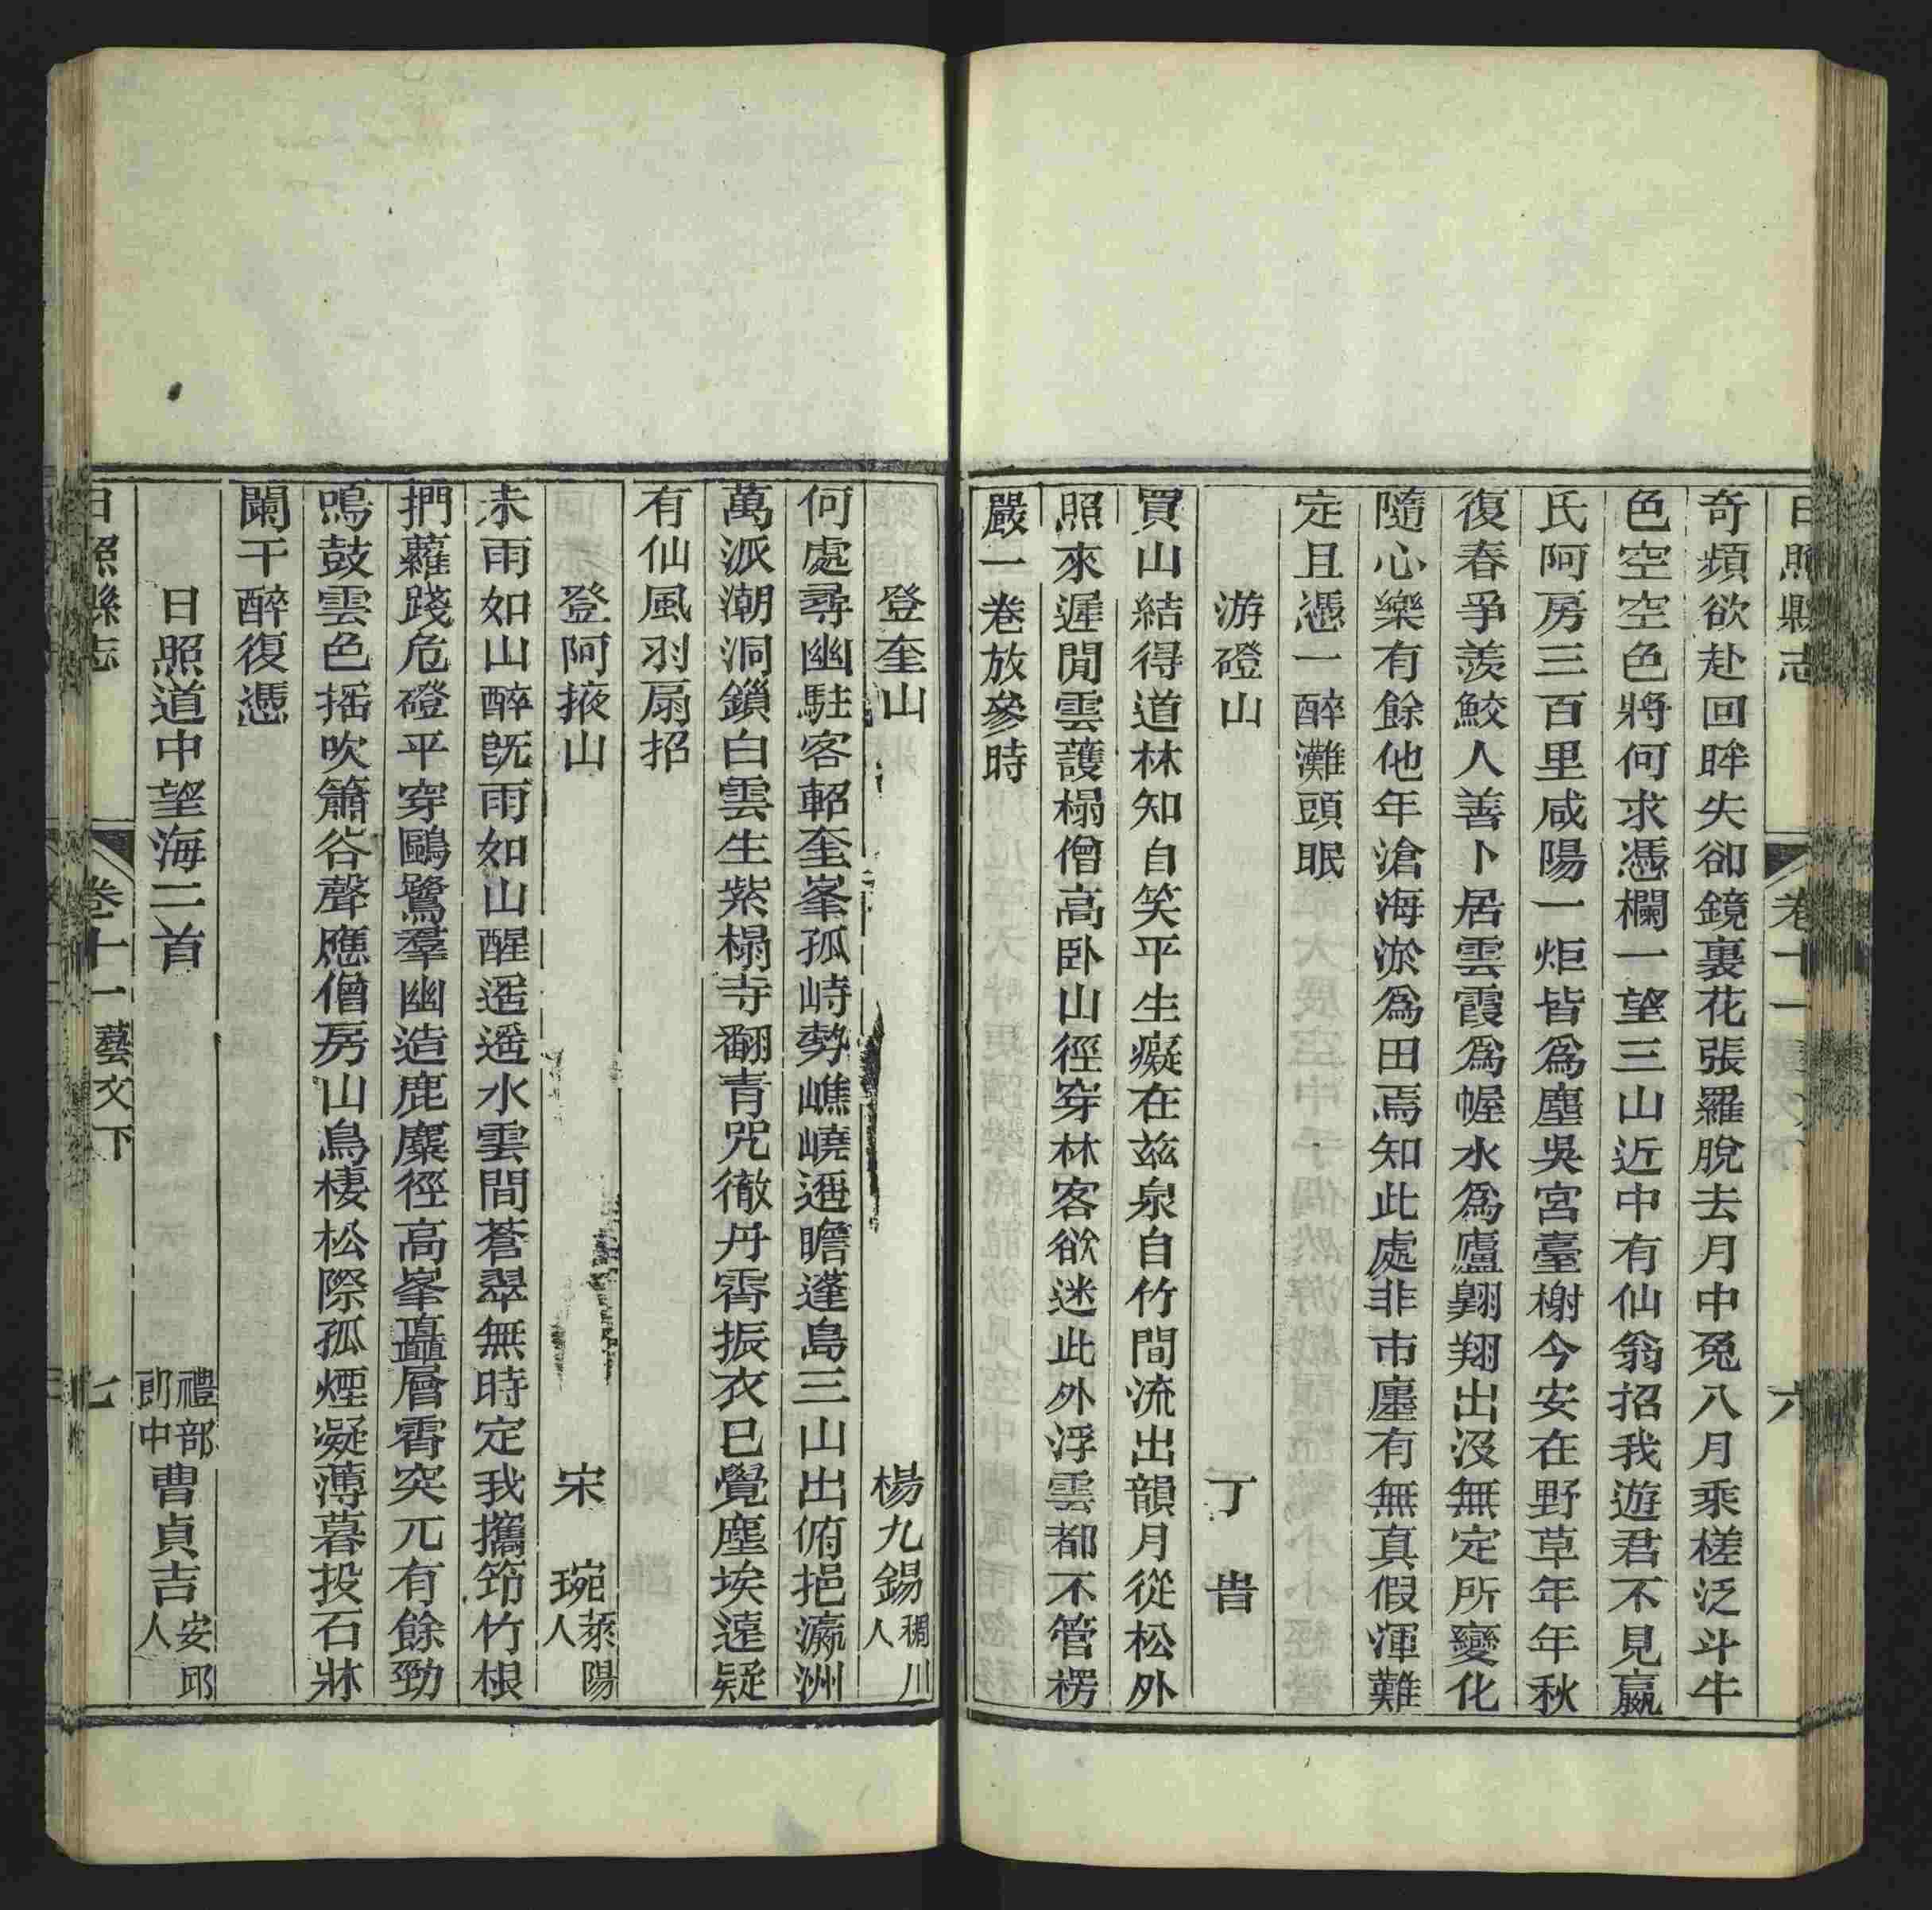 日照縣志 卷十一 六
奇頻欲赴回眸失卻鏡裏花張羅脫去月中兔八月乘槎泛斗牛
色空空色將何求憑欄一望三山近中有仙翁招我遊君不見嬴
氏阿房三百里咸陽一炬皆爲塵吳宮臺榭今安在野草年年秋
復春爭羨鮫人善卜居雲霞爲幄水爲廬翺翔出沒無定所變化
隨心樂有餘他年滄海淤爲田焉知此處非市廛有無真假渾難
定且憑一醉灘頭眠
游磴山 丁 耑
買山結得道林知自笑平生癡在兹泉自竹間流出韻月從松外
照來遲閒雲護榻僧高卧山徑穿林客欲迷此外浮雲都不管楞
嚴一卷放參時
登奎山 楊九錫 稠川人
何處尋幽駐客軺奎峯孤峙勢嶕嶢遥瞻蓬島三山出俯挹瀛洲
萬派潮洞鎖白雲生紫榻寺翻青咒徹丹霄振衣已覺塵埃遠疑
有仙風羽扇招
登阿掖山 宋 琬 萊陽人
未雨如山醉旣雨如山醒遥遥水雲間蒼翠無時定我攜笻竹根
捫蘿踐危磴平穿鷗鷺羣幽造鹿麋徑高峯矗層霄突兀有餘勁
鳴鼓雲色揺吹簫谷聲應僧房山鳥棲松際孤煙凝薄暮投石牀
闌干醉復憑
日照道中望海二首 禮部郎中曹貞吉 安邱人
日照縣志 卷十一藝文下 七